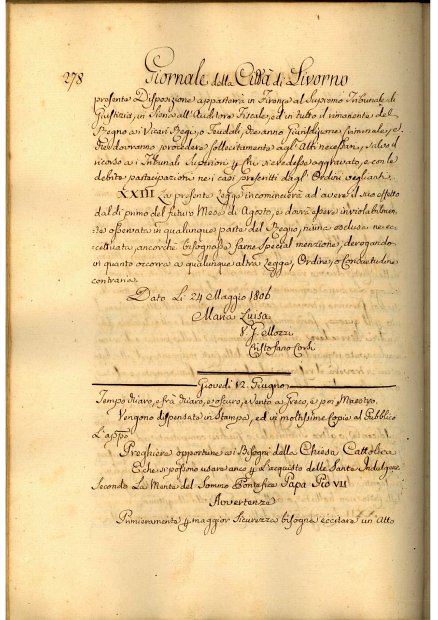 278 Giornale della Città di Livorno
presente Disposizione apparterrà in Firenze al Supremo Tribunale di
Giustizia, in Siena all'Auditore Fiscale, ed in tutto il rimanente del
Regno a i Vicari Regi, o Feudali, che anno Giurisdizione Criminale, e
che dovranno procedere sollecitamente agl'Atti necessari, salvo il
ricorso a i Tribunali Superiori p chi si credesse aggravato, e con le
debite partecipazioni ne i casi prescritti dagl'Ordini veglianti.
XXIII La presente Legge incomincierà ad avere il suo effetto
dal dì primo del futuro Mese di Agosto, e dovrà essere inviolabilmen-
te osservata in qualunque parte del Regno, niuna esclusa ne ec-
cettuata, ancorchè bisognasse farne special menzione, derogando
in quanto occorra a qualunque altra Legge, Ordine, o Consuetudine
contraria.
Dato Li 24 Maggio 1806
Maria Luisa
V. J. Mozzi
Cristofano Corsi
Giovedì 12. Giugno
Tempo chiaro, e frà chiaro, e oscuro, e Vento a Greco, e poi Maestro.
Vengono dispensate in Stampa, ed in moltissime Copie al Pubblico
L'appe
Preghiere opportune a i Bisogni della Chiesa Cattolica
E che si possono usare anco p l'acquisto delle Sante Indulgenze
Secondo La Mente del Sommo Pontefice Papa Pio VII
Avvertenze
Primieramente p maggior Sicurezza bisogna eccitare un Atto